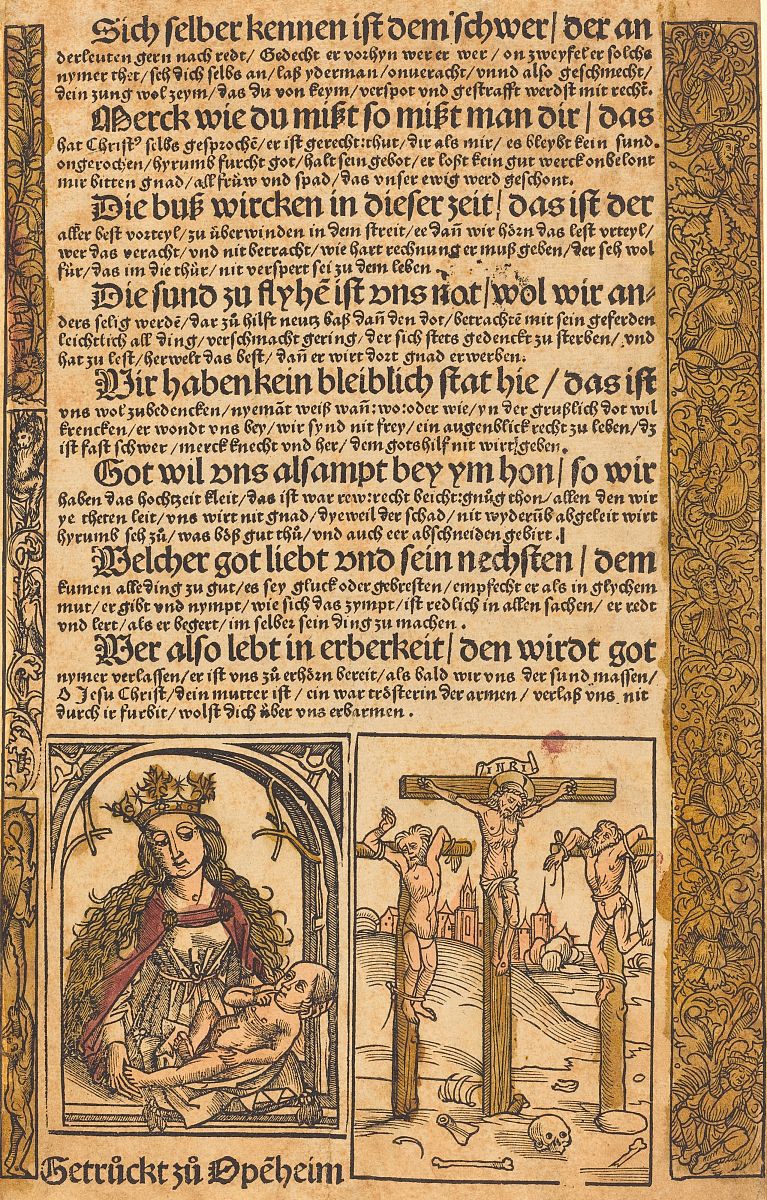 Sich selber kennen ist dem schwer/ der an
derleuten gern nach redt/ Gedecht er vorhyn wer er wer/ on zweyfel er solchs
nymer thet/ seh dich selbs an/ laß yderman/ onveracht/ vnnd also geschmecht/
dein zung wol zeym/ das du von keym/ verspot vnd gestrafft werdst mit recht.
Merck wie du mißt so mißt man dir/ das
hat Christꝰ selbs gesprochē/ er ist gerecht:thut/ dir als mir/ es bleybt kein sund.
ongerochen/ hyrumb furcht got/ halt sein gebot/ er loßt kein gut werck onbelont
mir bitten gnad/ all frůw vnd spad/ das vnser ewig werd geschont.
Die buß wircken in dieser zeit/ das ist der
aller best vorteyl/ zu überwinden in dem streit/ ee dañ wir hörn das lest vrteyl/
wer das veracht/ vnd nit betracht/ wie hart rechnung er muß geben/ der seh wol
für/ das im die thür/ nit verspert sei zu dem leben
Die sund zu flyhē ist vns not/ wol wir an-
ders selig werdē/ dar zů hilft neutz baß dañ den dot/ betrachtē mit sein geferden
leichtlich all ding/ verschmacht gering/ der sich stets gedenckt zu sterben/ vnd
hat zu lest/ herwelt das best/ dañ er wirt dort gnad erwerben.
Wir haben kein bleiblich stat hie/ das ist
vns wol zubedencken/ nyemāt weiß wañ:wo:oder wie/ yn der grußlich dot wil
krencken/ er wondt vns bey/ wir synd nit frey/ ein augenblick recht zu leben/ dz
ist fast schwer/ merck knecht vnd her/ dem gots hilf nit wirt geben.
Got wil vns alsampt bey ym hon/ so wir
haben das hochtzeit kleit/ das ist war rew:recht beicht:gnůg thon/ allen den wir
ye theten leit/ vns wirt nit gnad/ dyeweil der schad/ nit wyderůb abgeleit wirt
hyrumb seh zů/ was böß gut thů/ vnd auch eer abschneiden gebirt.
Welcher got liebt vnd sein nechsten/ dem
kumen alle ding zu gut/ es sey gluck oder gebresten/ empfecht er als in glychem
mut/ er gibt vnd nympt/ wie sich das zympt/ ist redlich in allen sachen/ er redt
vnd lert/ als er begert/ im selber sein ding zu machen.
Wer also lebt in erberkeit/ den wirdt got
nymer verlassen/ er ist vns zů erhörn bereit/ als bald wir vns der sund massen/
O Jesu Christ/ dein mutter ist/ ein war trösterin der armen/ verlaß vns nit
durch ir furbit/ wolst dich über vns erbarmen.
INRI
Getrůckt zů Opēheim